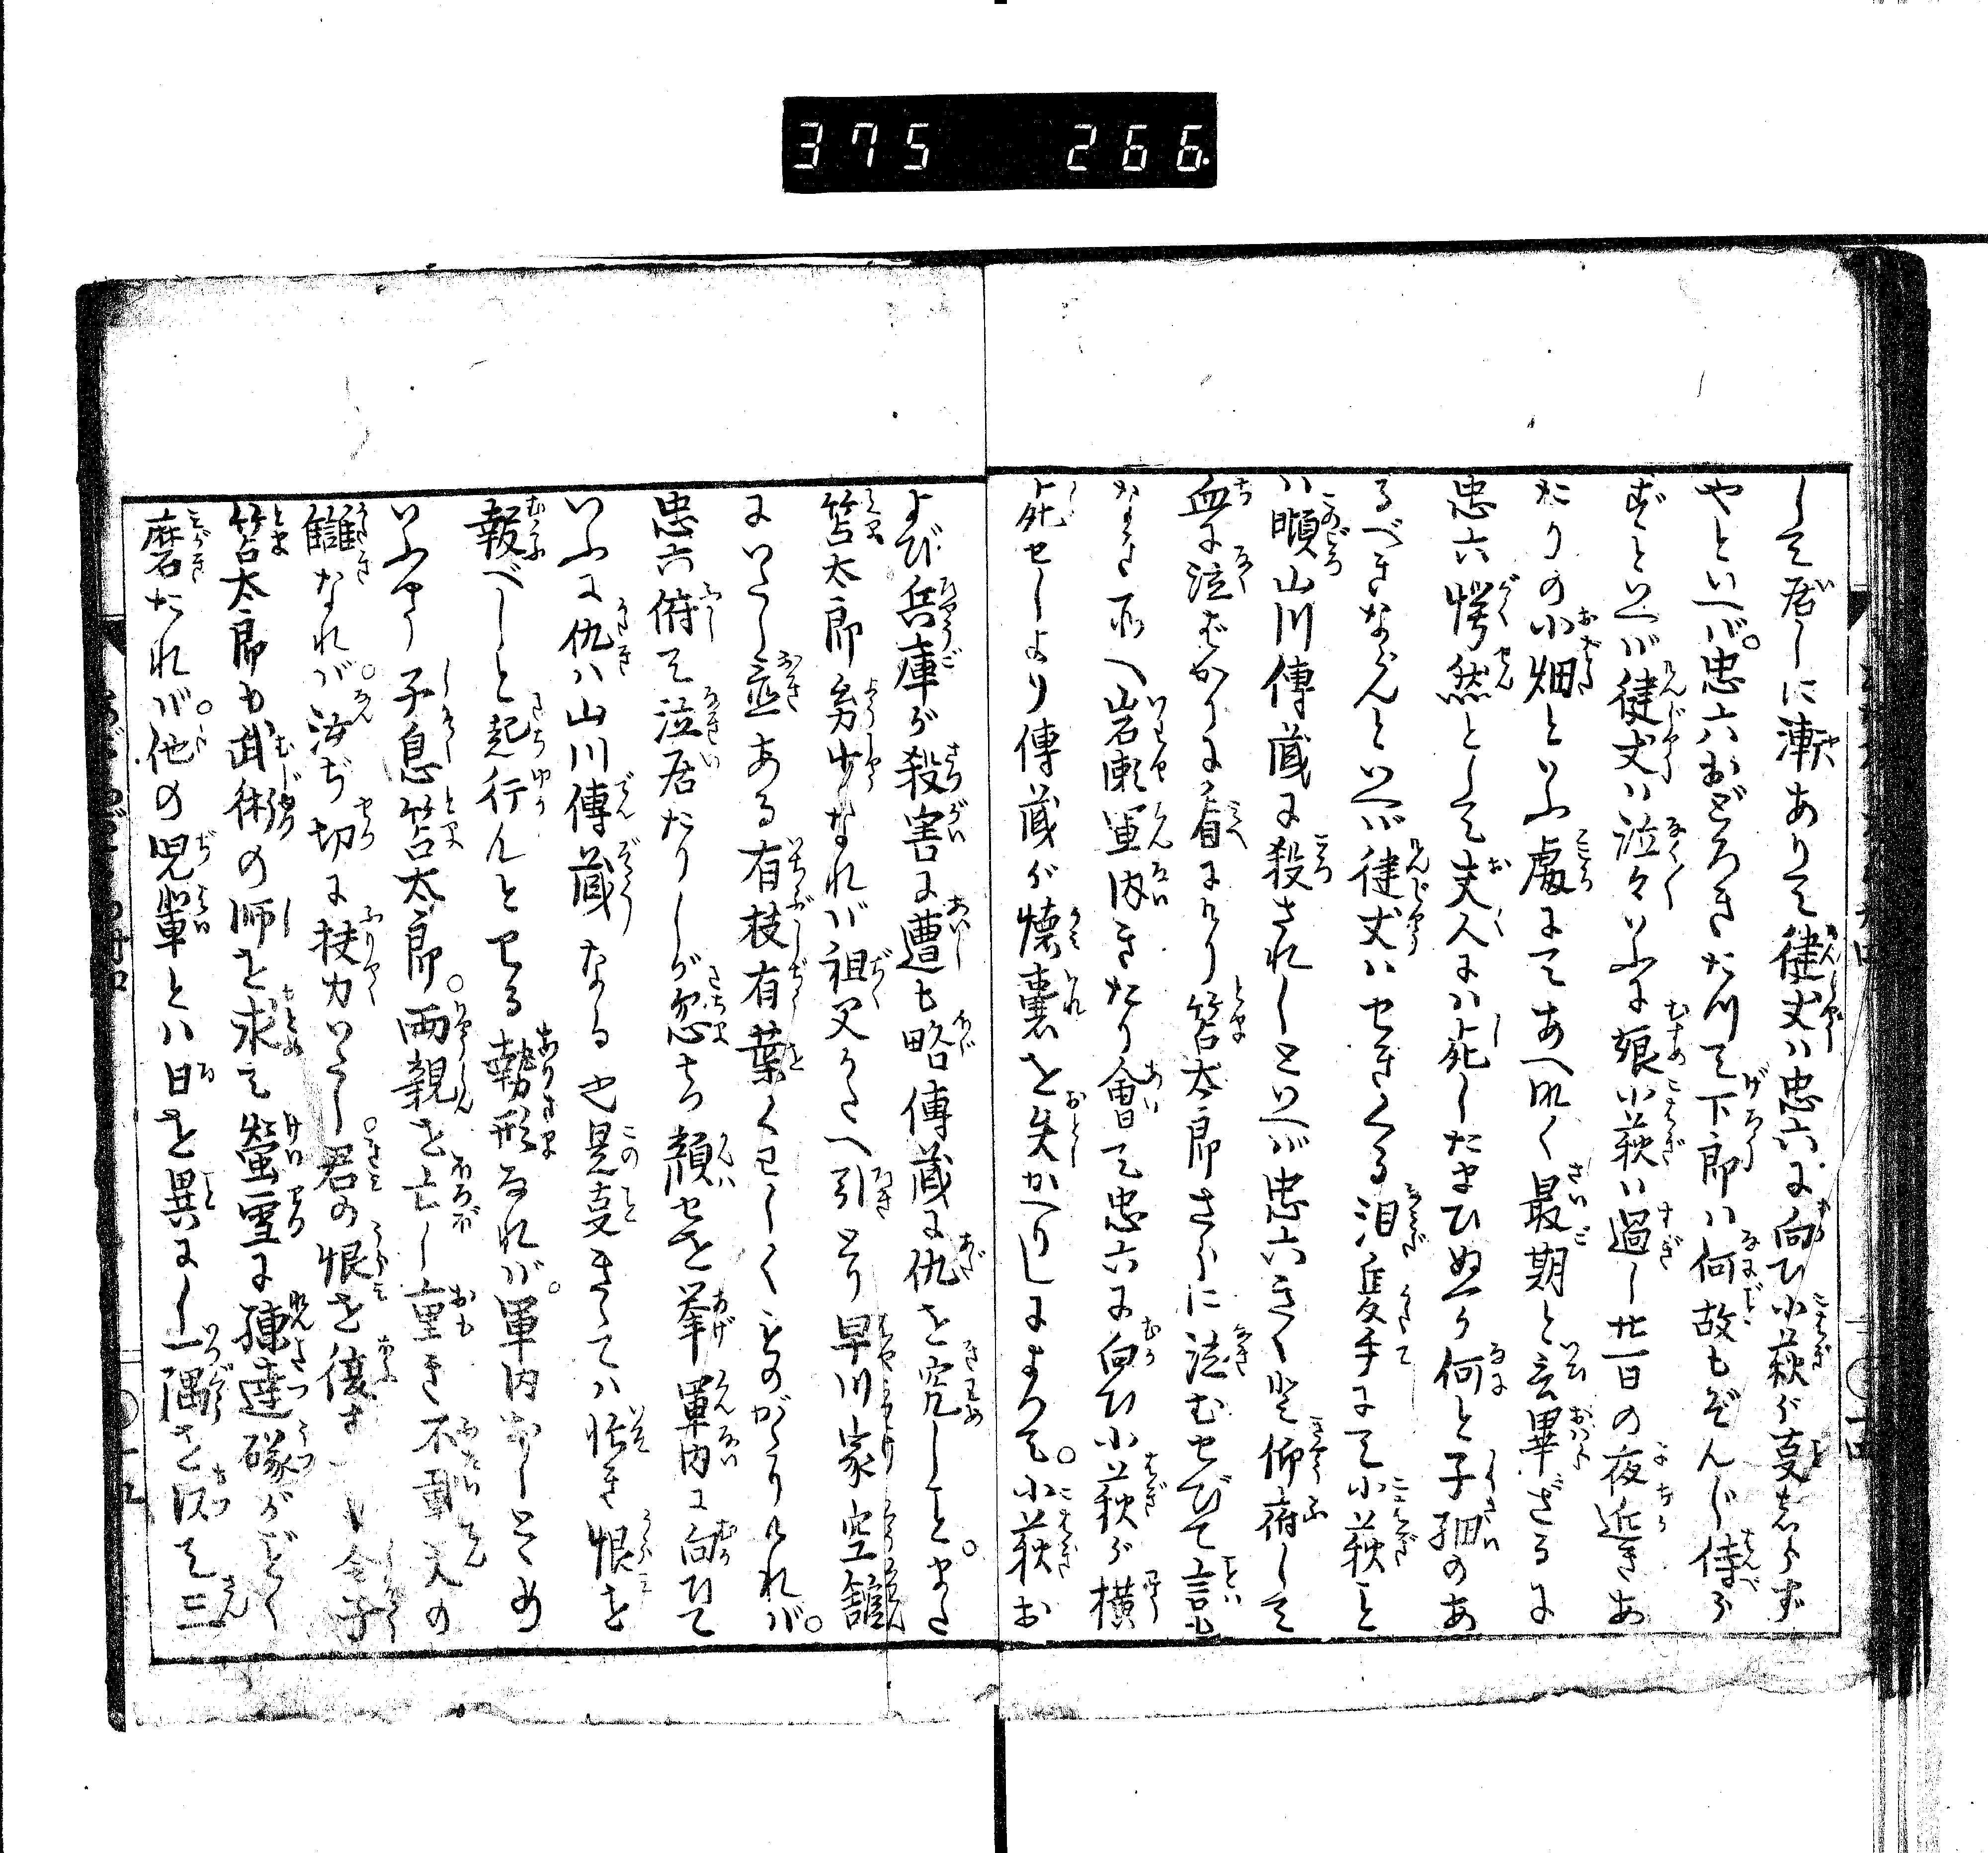 375 266.
して居しに漸ありて健丈ハ忠六に向ひ小萩が叓しらず
やといへば。忠六おどろきたつて下郎ハ何故もぞんじ侍ら
ずといへば健丈ハ泣々いふに娘小萩ハ過し廿一日の夜近きあ
たりの小畑といふ處にてあへなく最期と言畢ざるに
忠六愕然として丈人にハ死したまひぬるか何と子細のあ
るべきなどんといへば健丈ハせきくる泪隻手にて小萩こと
ハ頃山川傳蔵に殺されしといへば忠六きくと仰府して
血に泣ばかりに看にけり笘太郎さらに泣むせびて言も
なき所へ岩瀬軍内きたり會て忠六に向ひ小萩が横
死せしより傳蔵が懐嚢を失かへりしによつて。小萩お
よび兵庫が殺害に遭も略傳蔵に仇を究しこと。また
笘太郎幼少なれば祖父かたへ引とり早川家空舘
にいたし置ある有枝有葉くはしくものがたりければ。
忠六俯て泣居たりしが忽ち顔せを挙軍内に向ひて
いふに仇ハ山川傳蔵なる也是叓きゝてハ怪き恨を
報べしと起行んとする勢形なれば。軍内おしとゞめ
いふやう子息笘太郎。両親を亡し重き不戴天の
讎なれば。汝ぢ切に扶力いたし。君の恨を復す 令子
笘太郎も武術の師を求て螢雪に練達礲がごとく
磨たれば。他の児輩とハ日を異にし一隅を決て三